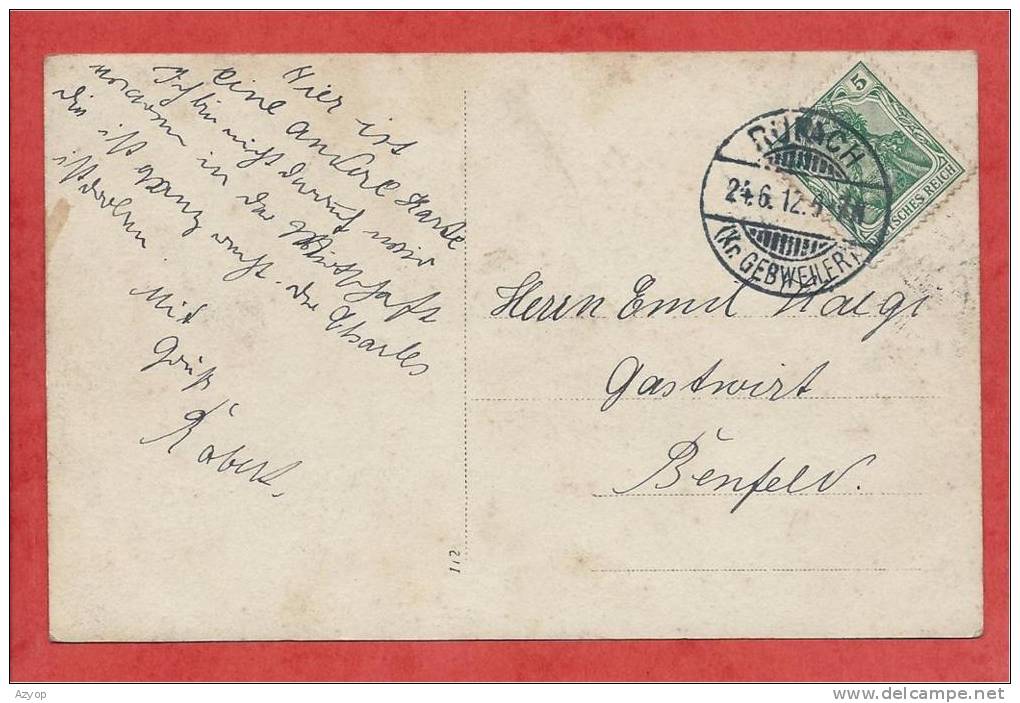 Hier ist
eine andere Karte
Ich bin nicht darauf
in der Wirtschaft
ist ganz der Charles
Mit
Gruß
Robert.
5
DEUTSCHES REICH
24.6.12.
(Kr. GEBWEILER)
Herrn Emil Naegel
Gastwirt
Benfeld.
112
Azyop
www.delcampe.net